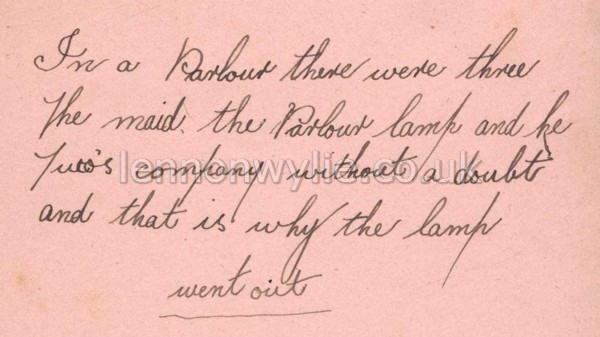 In a Parlour there were three
The maid. the Parlour lamp and he
Two's company without a doubt
lennonwylie.co.uk
and that is why the lamp
went out